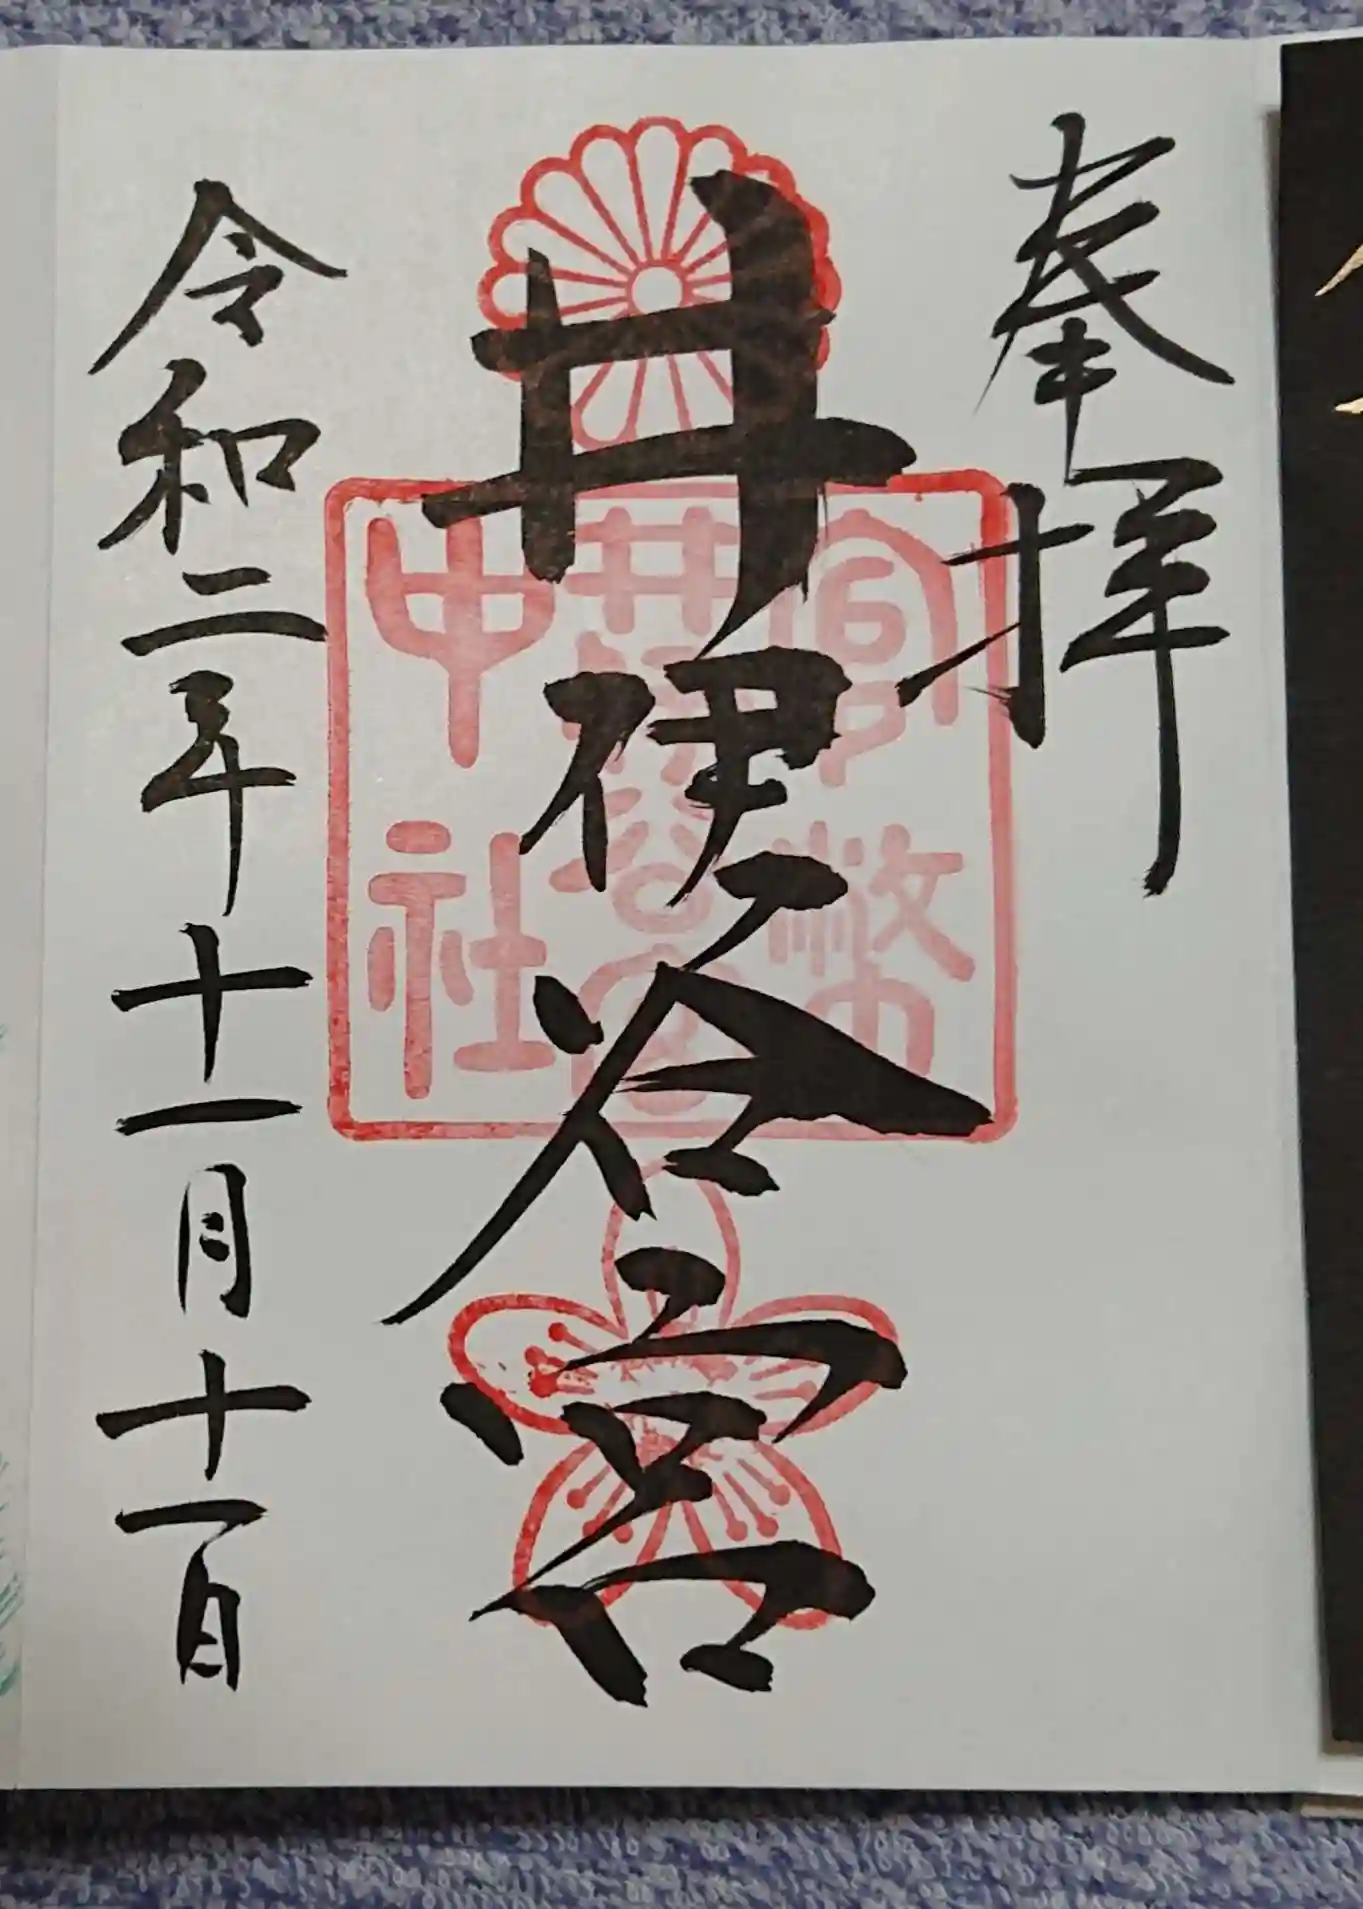 奉拝
井伊谷宮
官幣
井伊谷宮
中社
令和二年十一月十一日